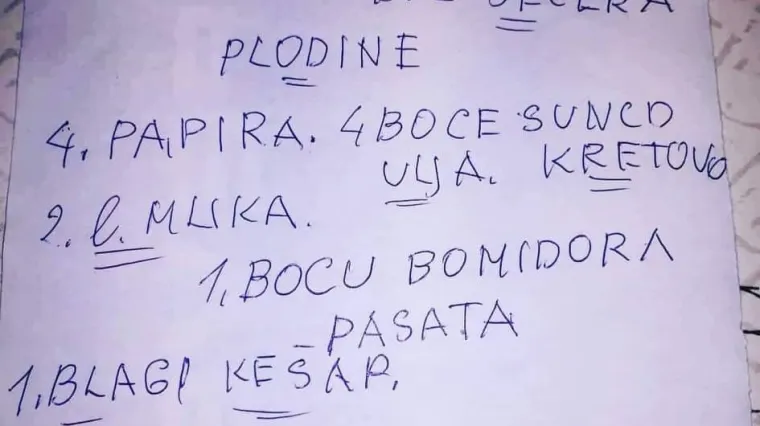 PLODINE
4. PAPIRA. 4 BOCE SUNCO
ULJA. KRETOVO
2. l. MLIKA.
1, BOCU BOMIDORA
- PASATA
1. BLAGI KEŠAP.